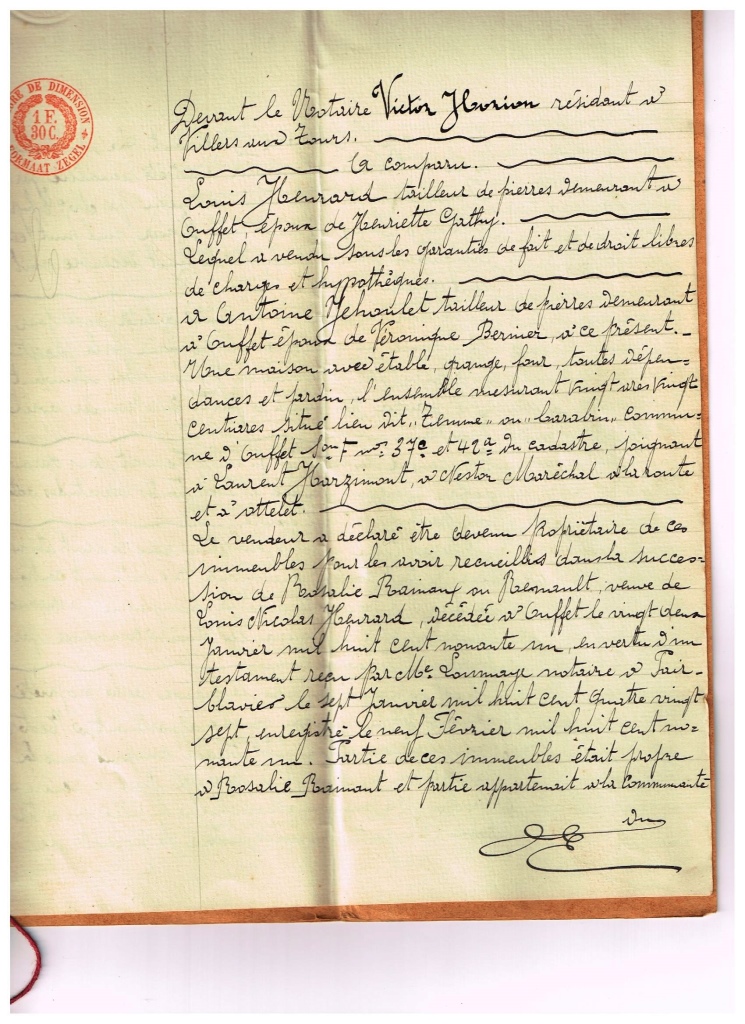 1 F.
30 C.
Devant le Notaire Victor Horion résidant à
Villers aux Tours.
A comparu.
Louis Henrard tailleur de pierres demeurant à
Ouffet, époux de Henriette Gathy.
Lequel a vendu sous les garanties de fait et de droit libres
de charges et hypothèques.
à Antoine Jehoulet tailleur de pierres demeurant
à Ouffet époux de Véronique Bernier, à ce présent.
Une maison avec étable, grange, four, toutes dépen-
dances et jardin, l'ensemble mesurant vingt ares vingt
centiares situé lieu dit „Temme" ou „Carabin" commu-
ne d'Ouffet Son F nos 37c et 42a du cadastre, joignant
à Laurent Harzimont, à Nestor Maréchal à la route
et à attelet.
Le vendeur a déclaré être devenu propriétaire de ces
immeubles pour les avoir recueillis dans la succes-
sion de Rosalie Ramaux ou Renault, veuve de
Louis Nicolas Henrard, décédée à Ouffet le vingt deux
Janvier mil huit cent nonante un, en vertu d'un
testament reçu par Me Loumaye notaire à
le sept Janvier mil huit cent quatre vingt
sept, enregistré le neuf Février mil huit cent no-
nante un. Partie de ces immeubles était propre
à Rosalie Ramaut et partie appartenait à la communauté
du